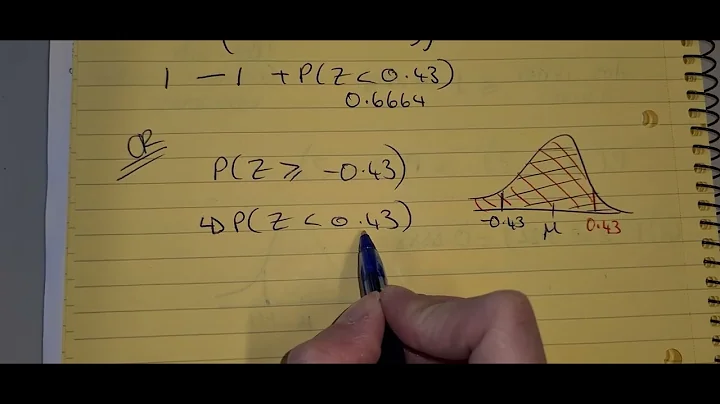 1 - 1 + P(Z < 0.43)
0.6664
OR
P(Z ≥ -0.43)
↳ P(Z < 0.43)
-0.43 μ 0.43